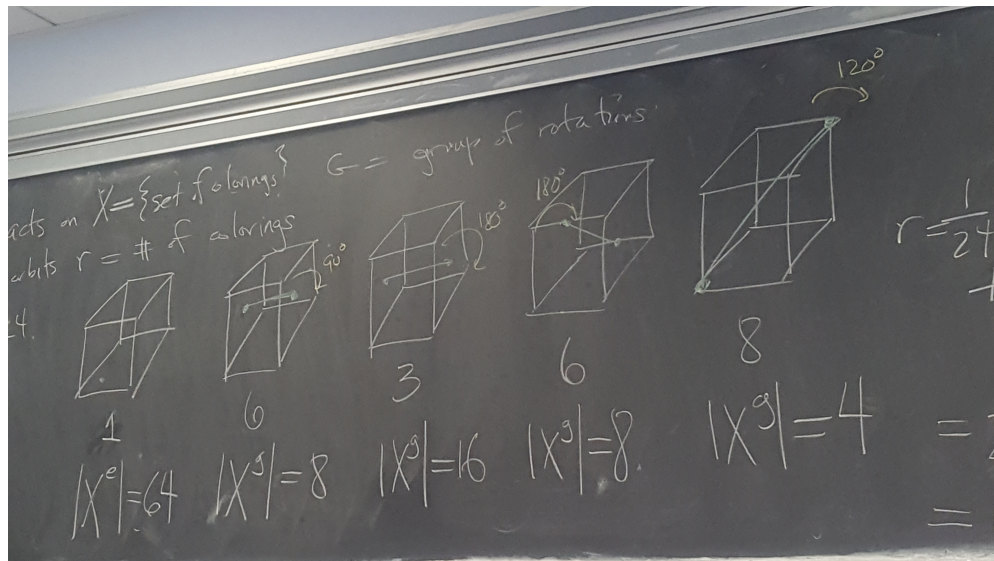 acts on X={set of colorings} G = group of rotations.
orbits r = # of colorings
=4.
90°
180°
180°
120°
1 6 3 6 8
|Xᵉ|=64 |Xᵍ|=8 |Xᵍ|=16 |Xᵍ|=8. |Xᵍ|=4
r=1/24
+
=
=